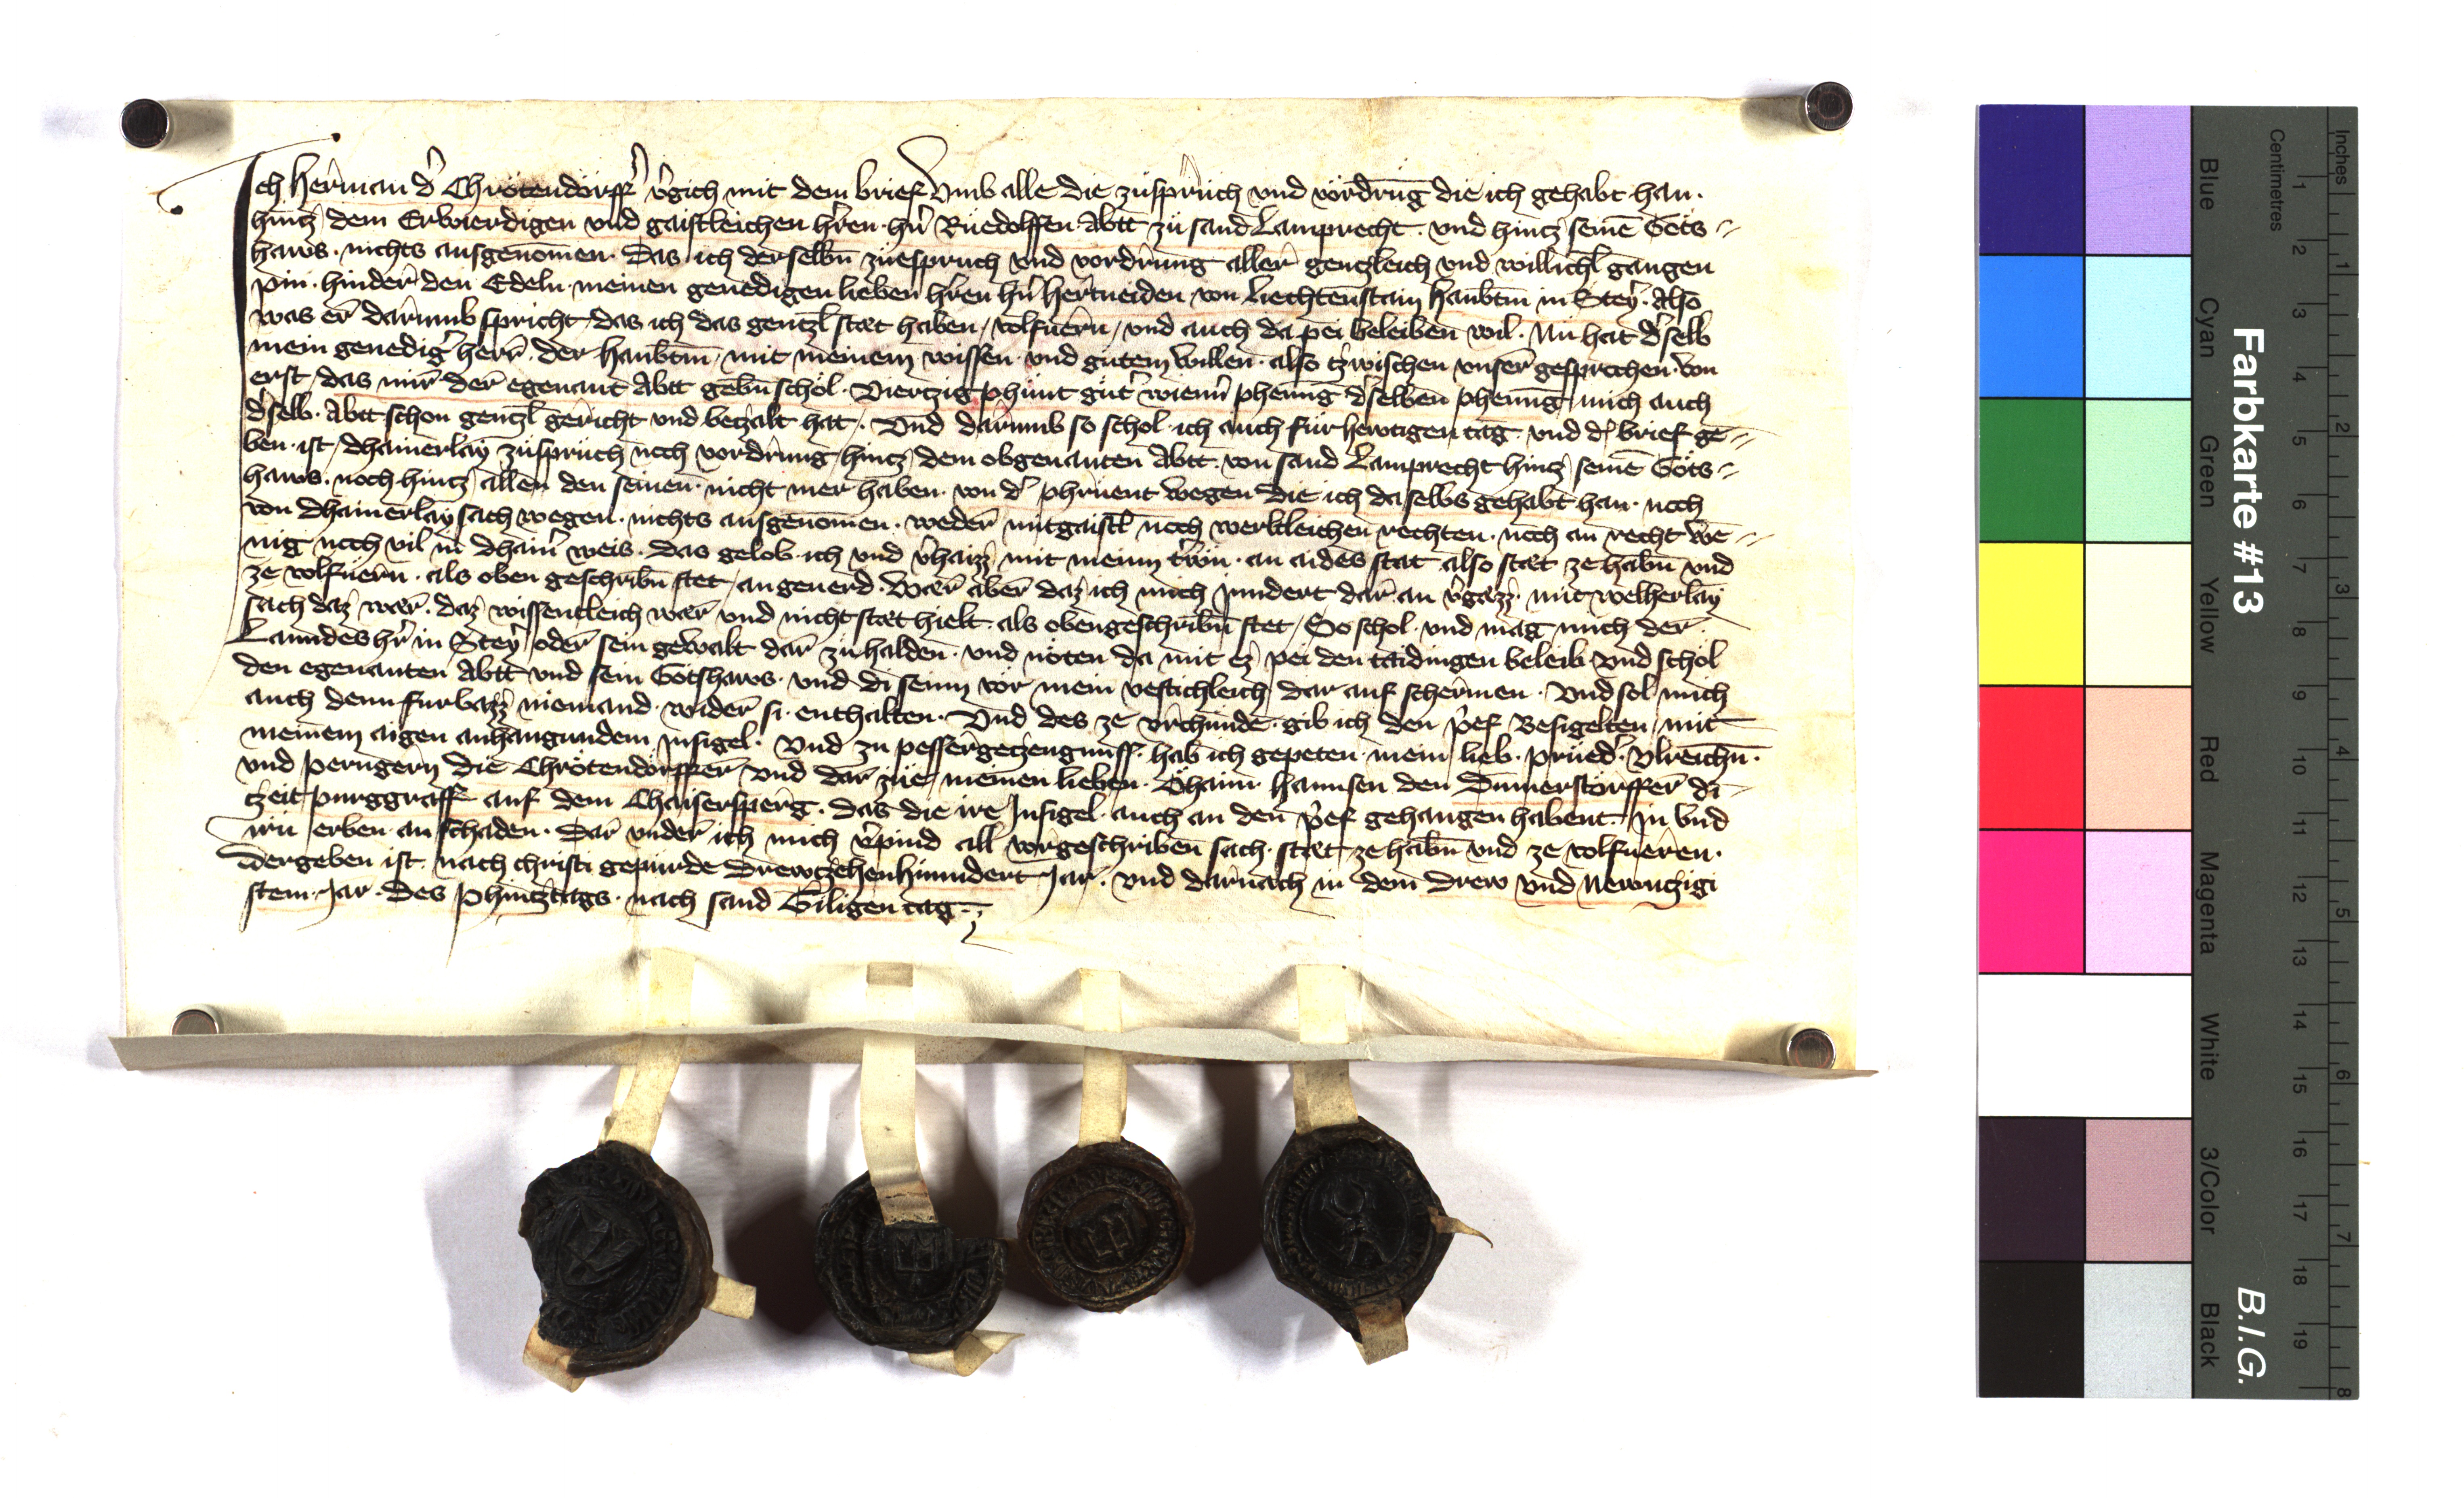 Ich Herman d' Chrötendorff' v'gich mit dem brief Vmb alle die züsprüch vnd vordrūg die ich gehabt han.
hintz dem Erwierdigen vnd gaistleichen h'ren. hn' Rüedolffen. Abtt zü sand Lamprecht. vnd hintz seinē Gots=
haws. nichts ausgenomen. Das ich derselbn̄ züespruch vnd vordrung aller gentzleich vnd willichl̄ gangen
pin. hinder den Edeln. meinen genedigen lieben h'ren hn' Hertneiden. von Liechtenstain Haubtm̄ in Stey'. Also
was er darumb spricht, das ich das gentzl̄ stæt haben, volfuern, vnd auch da pei beleiben wil. Nu hat d'selb
mein genedig' herr. der Haubtm̄. mit meinem wissen. vnd gütem willen. also tzwischen vnser gesprochen. von
erst, das mir der egenant Abtt gebn̄ schol. Viertzig phunt güt' wienn' phennīg d'selben phennīg mich auch
d'selb. Abtt schon gentzl̄ gericht vnd betzalt hat. Vnd darumb so schol. ich auch für hewtigen tag. vnd d' brief ge=
ben. ist, dhainerlay züsprüch noch vordrung, hintz dem obgenanten Abtt. von sand Lamprecht hintz seinē Gots=
haws. noch hintz allen den seinen. nicht mer haben. von d' phruent wegen die ich daselbs gehabt han. noch
von dhainerlay sach wegen. nichts ausgenomen. weder mit gaistl̄ noch werltleichen rechten. noch an recht we=
nig noch vil in dhain' weis. das gelob. ich vnd v'haizz mit meinn trwn. an aides stat also stæt ze habn̄ vnd
ze volfuern. als oben geschribn̄ stet, an geuerd. Wær aber daz ich mich jndert dar an v'gæzz. mit welherlay
sach daz wær. daz wissentleich wær vnd nicht stæt hielt. als oben geschribn̄ stet, So schol. vnd mag mich der
Lanndesh'r in Stey' oder sein gewalt dar zü halden. vnd nöten da mit ez pei den taidingen beleib vnd schol
den egenanten Abtt vnd sein Gotshaws. vnd di seinn vor mein vestichleich dar auf schermen. Vnd sol mich
auch denn furbazz niemand. wider si. enthalten. Vnd des ze vrchunde. gib ich den p'ef Besigelten, mit
meinem aigen anhangundem Insigel. Vnd zu pesser getzeugnuss. hab ich gepeten. mein lieb. prued'. Vlreichn̄.
vnd Perngern die Chrötendorffer vnd dar züe, meinen lieben. Ohaim. Hannsen den Dūnerstorffer di=
tzeit purggraff auf dem Chaisersperg. das die ire Insigel. auch an den p'ef gehangen habent. In vnd
irn erben. an schaden. Dar vnder ich mich v'pind all vorgeschriben sach. stæt. ze habn̄ vnd ze volfueren.
Der geben ist. nach christi gepurde Drewtzehenhunndert Jar. vnd darnach in dem drew vnd Newntzigi
stem. Jar. Des Phintztags. nach sand Giligen tag.
Farbkarte #13
B.I.G.
Inches
Centimetres
Blue
Cyan
Green
Yellow
Red
Magenta
White
3/Color
Black
1 2 3 4 5 6 7 8 9 10 11 12 13 14 15 16 17 18 19
1 2 3 4 5 6 7 8